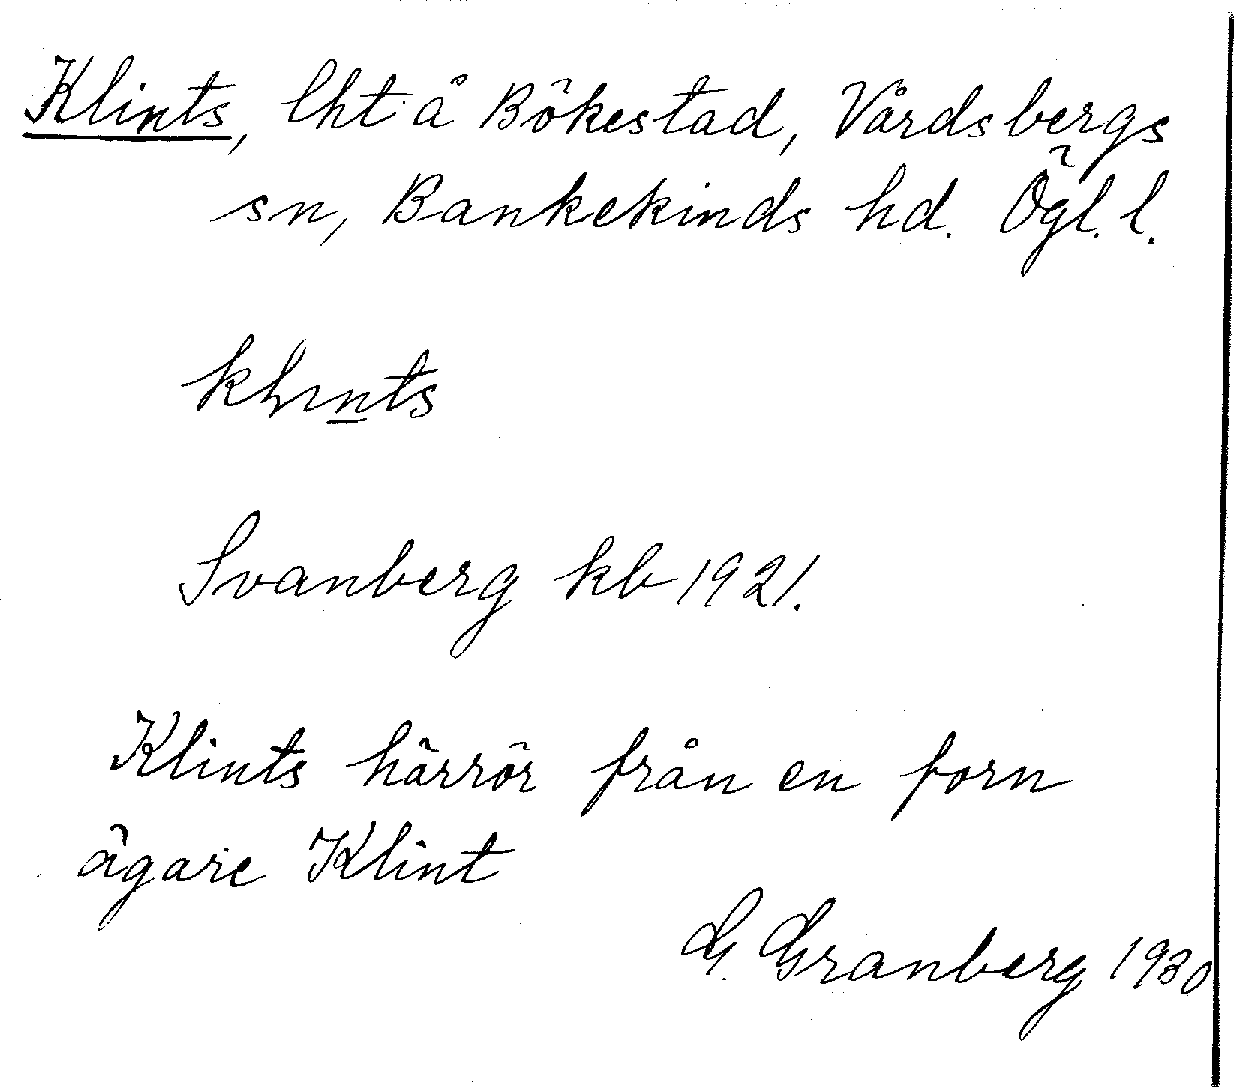 Klints, lht å Bökestad, Vårdsbergs
sn, Bankekinds hd. Ögl. l.
klınts
Svanberg kb 1921.
Klints härrör från en forn
ägare Klint
G. Granberg 1930